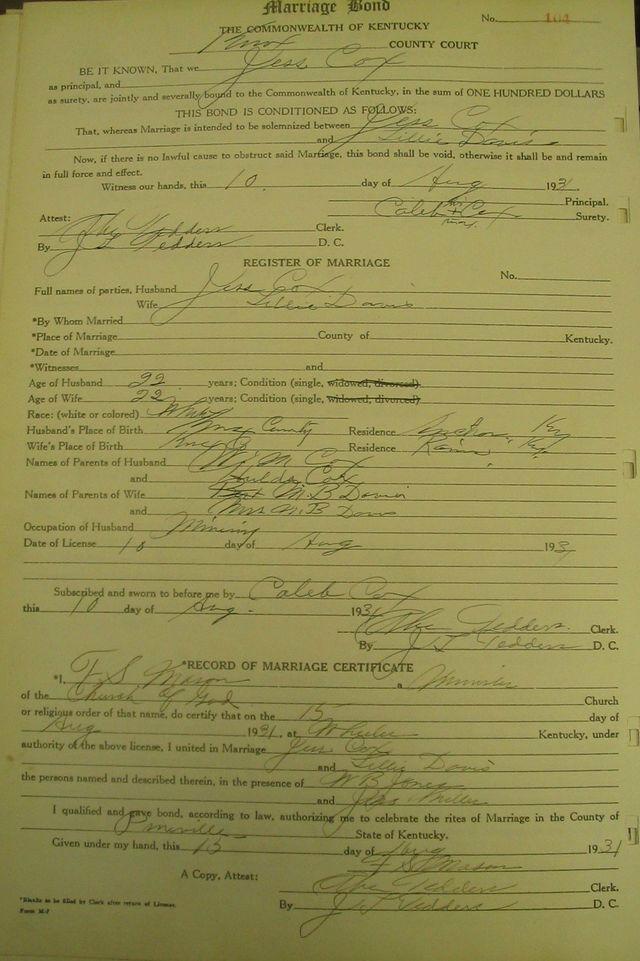 Marriage Bond
No. 104
THE COMMONWEALTH OF KENTUCKY
Knox COUNTY COURT
BE IT KNOWN, That we Jess Cox
as principal, and
as surety, are jointly and severally bound to the Commonwealth of Kentucky, in the sum of ONE HUNDRED DOLLARS
THIS BOND IS CONDITIONED AS FOLLOWS:
That, whereas Marriage is intended to be solemnized between Jess Cox
and Lillie Davis
Now, if there is no lawful cause to obstruct said Marriage, this bond shall be void, otherwise it shall be and remain
in full force and effect.
Witness our hands, this 10 day of Aug 1931
Principal.
Caleb Cox Surety.
Attest:
Abe Tedders Clerk.
By J L Tedders D. C.
REGISTER OF MARRIAGE
No.
Full names of parties, Husband Jess Cox
Wife Lillie Davis
*By Whom Married
*Place of Marriage County of Kentucky.
*Date of Marriage
*Witnesses and
Age of Husband 22 years; Condition (single, widowed, divorced)
Age of Wife 22 years; Condition (single, widowed, divorced)
Race: (white or colored) White
Husband's Place of Birth Knox County Residence Ky
Wife's Place of Birth Knox Co Residence Ky.
Names of Parents of Husband M Cox
and Cox
Names of Parents of Wife M.B Davis
and Mrs M.B Davis
Occupation of Husband Mining
Date of License 10 day of Aug 1931
Subscribed and sworn to before me by Caleb Cox
this 10 day of Aug. 1931
Abe Tedders. Clerk.
By J L Tedders D. C.
*RECORD OF MARRIAGE CERTIFICATE
*I, F S Mason a Minister
of the Church of God Church
or religious order of that name, do certify that on the 15 day of
Aug 1931, at Wheeler Kentucky, under
authority of the above license, I united in Marriage Jess Cox
and Lillie Davis
the persons named and described therein, in the presence of W B Jones
and Miller
I qualified and gave bond, according to law, authorizing me to celebrate the rites of Marriage in the County of
Pineville State of Kentucky.
Given under my hand, this 15 day of Aug 1931
F S Mason
A Copy, Attest:
Abe Tedders Clerk.
By J L Tedders D. C.
*Blanks to be filled by Clerk after return of License.
Form M-7